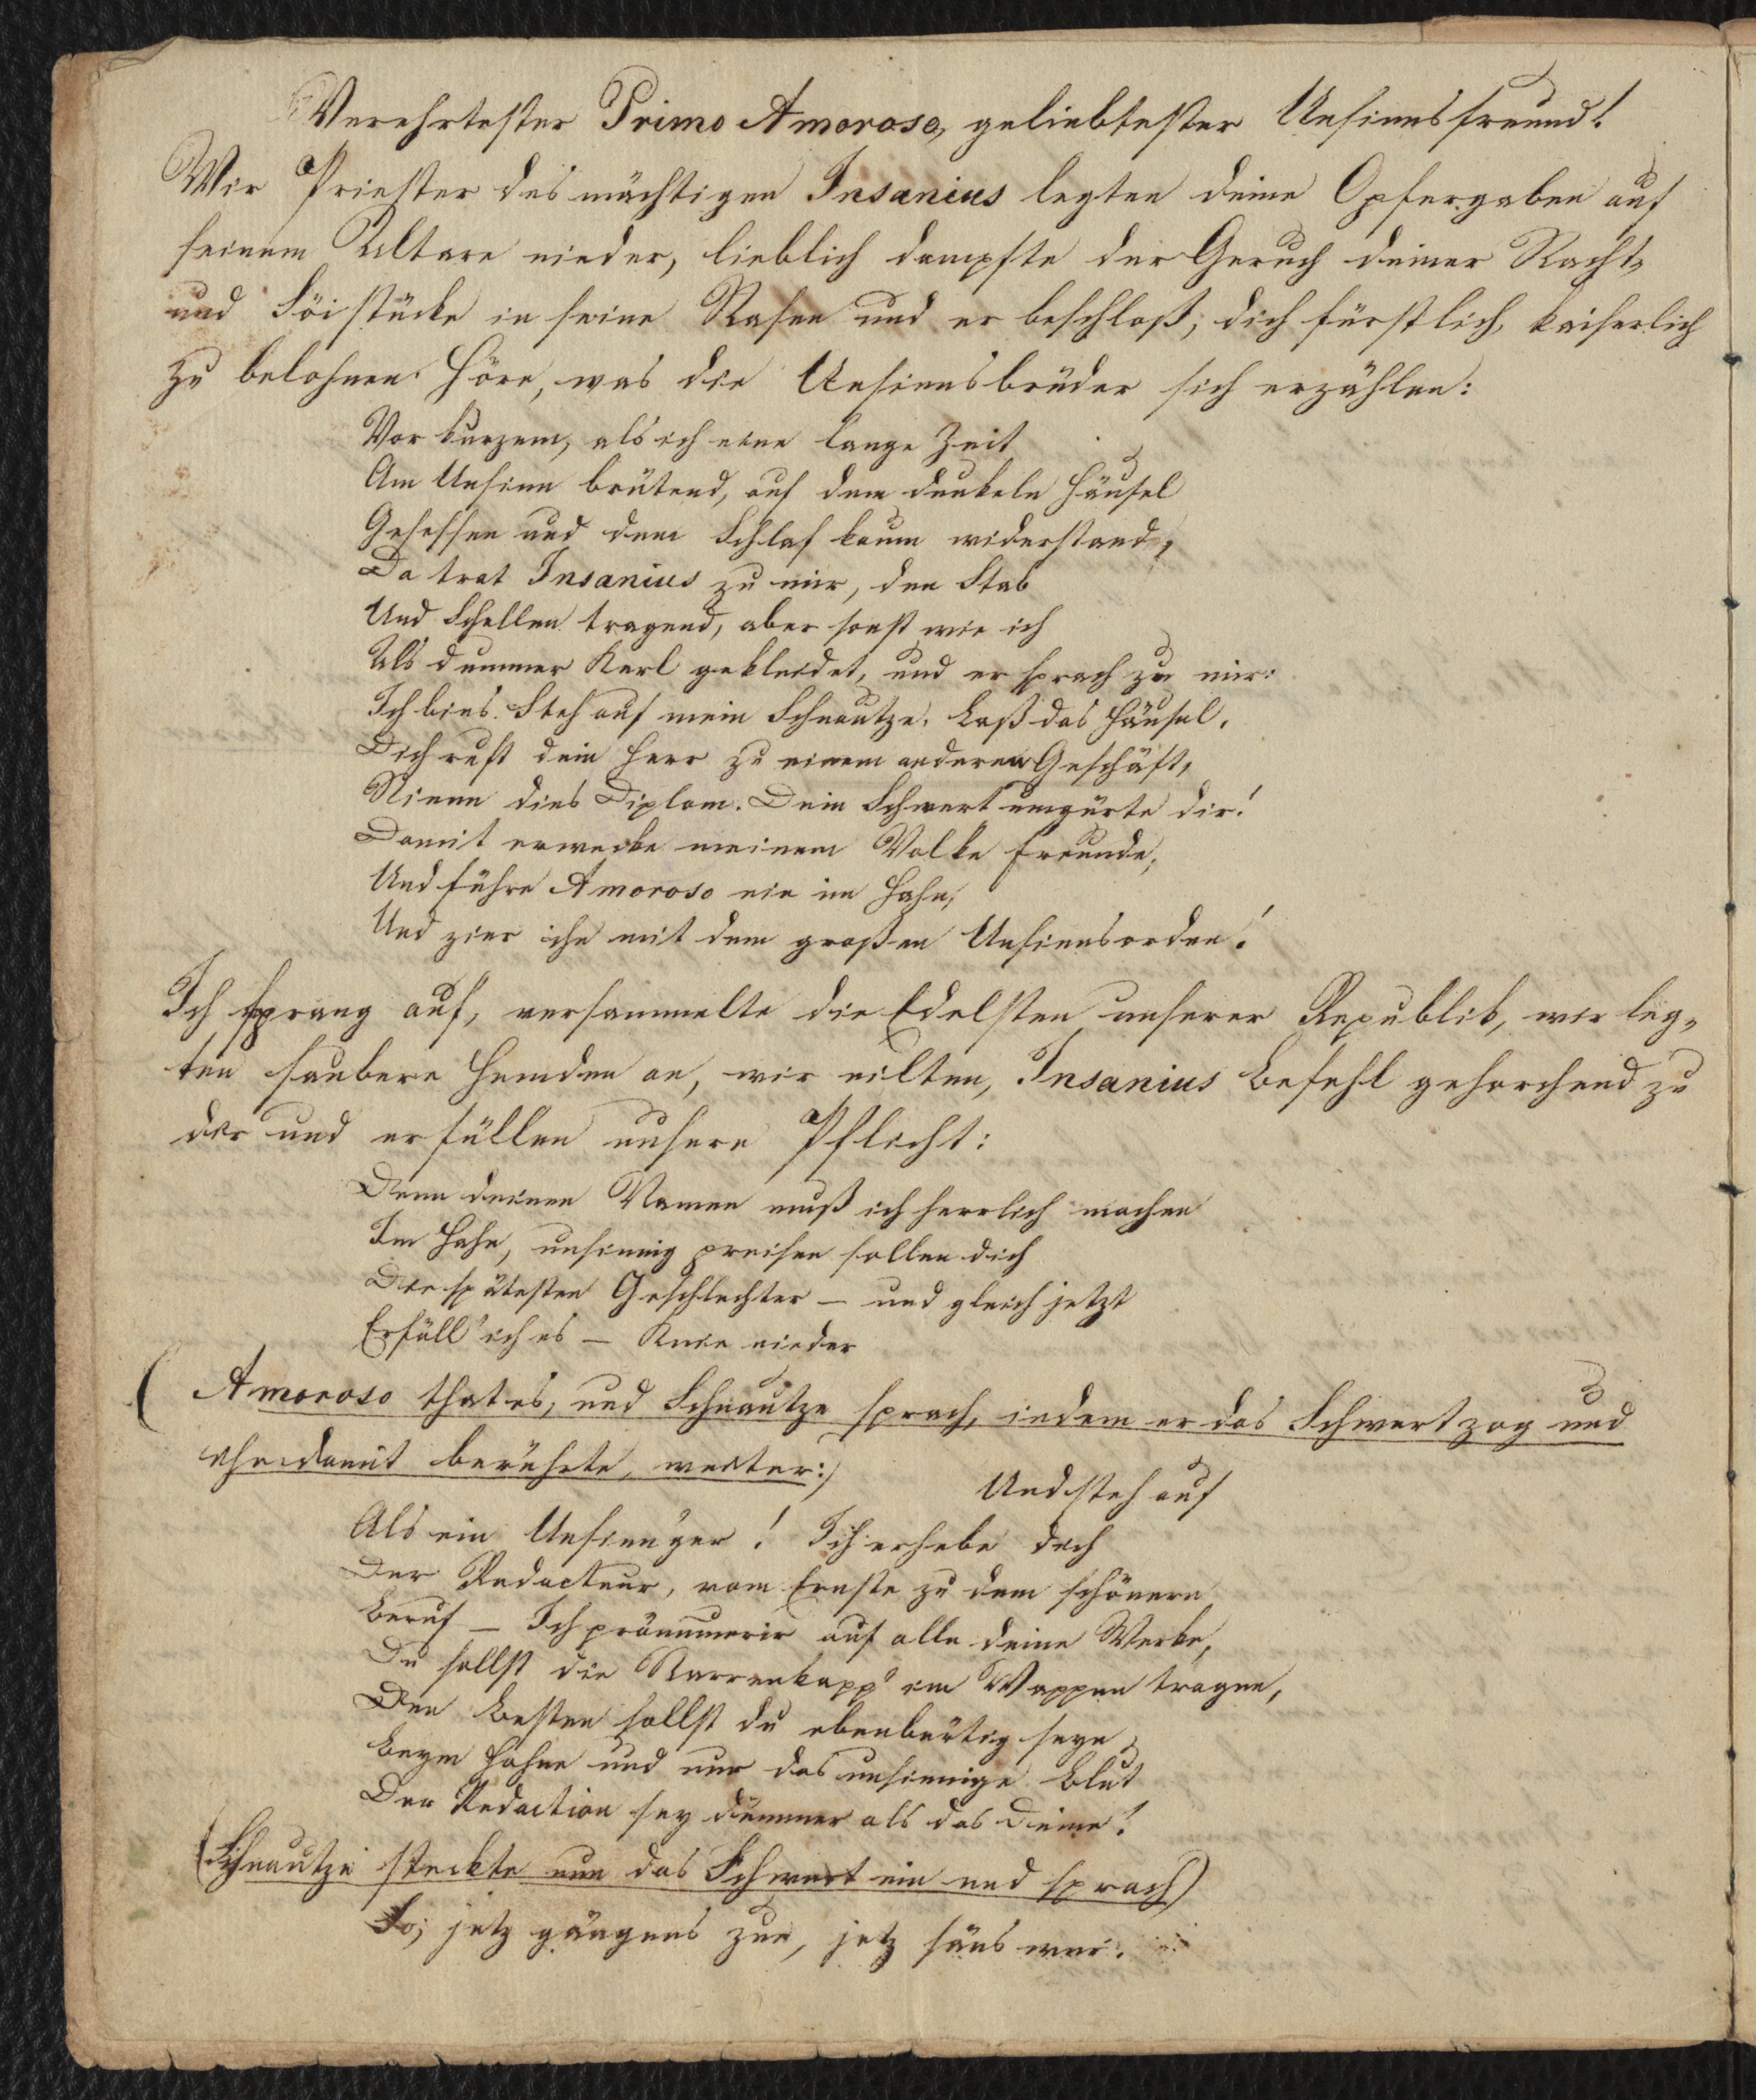 Verehrtester Primo Amoroso, geliebtester Unsinnsfreund!
Wir Priester des mächtigen Insanius legten deine Opfergaben auf
seinem Altare nieder, lieblich dampfte der Geruch deiner Nacht-
und Söistücke in seine Nasen und er beschloß, dich fürstlich, kaiserlich
zu belohnen. Höre, was die Unsinnsbrüder sich erzählen:
Vor kurzem, als ich eine lange Zeit
Am Unsinn brütend, auf dem dunkeln Häusel
Gesessen und dem Schlaf kaum widerstand,
Da trat Insanius zu mir, den Stab
Und Schellen tragend, aber sonst wie ich
Als dummer Kerl gekleidet, und er sprach zu mir:
Ich bins. Steh auf mein Schnautze. Laß das Häusel.
Dich ruft dein Herr zu einem anderen Geschäft,
Nimm dies Diplom. Dein Schwert umgürte dir!
Damit erwecke meinem Volke Freunde,
Und führe Amoroso ein im Hahn,
Und zier ihn mit dem großen Unsinnsorden!
Ich sprang auf, versammelte die Edelsten unserer Republik, wir leg-
ten saubere Hemden an, wir eilten, Insanius Befehl gehorchend zu
dir und erfüllen unsere Pflicht:
Denn deinen Namen muß ich herrlich machen
Im Hahn, unsinnig preisen sollen dich
Die spätesten Geschlechter – und gleich jetzt
Erfüll' ich es – Knie nieder
(Amoroso that es, und Schnautze sprach, indem er das Schwert zog und
ihn damit berührte, weiter:)
Und steh auf
Als ein Unsinn'ger! Ich erhebe dich
Der Redacteur, vom Ernste zu dem schönern
Beruf – Ich pränumerir auf alle deine Werke,
Du sollst die Narrenkapp' im Wappen tragen,
Den Besten sollst du ebenbürtig seyn
Beym Hahne und nur das unsinnige Blut
Der Redaction sey dümmer als das Deine!
(Schnautze steckte nun das Schwert ein und sprach)
So; jetz gängens zue, jetz säns wer.